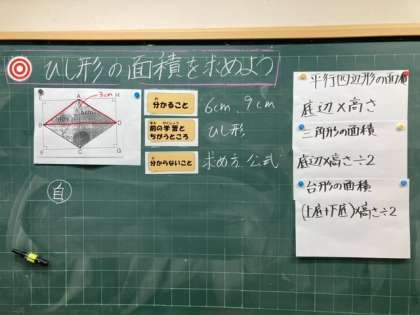 ひし形の面積を求めよう
3cm
A
分かること
6cm、9cm
前の学習と
ちがうところ
ひし形
分からないこと
求め方 公式
自
平行四辺形の面積
底辺×高さ
三角形の面積
底辺×高さ÷2
台形の面積
(上底+下底)×高さ÷2